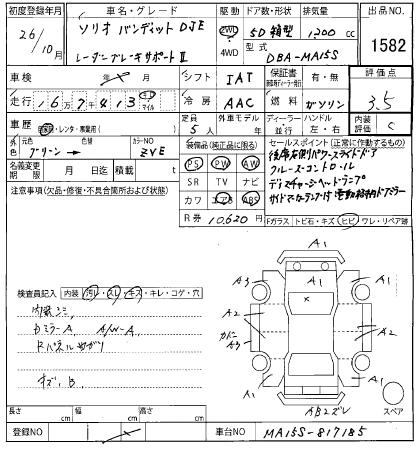 初度登録年月 車名・グレード 駆動 ドア数・形状 排気量 出品NO.
26/10 ソリオ バンディット DJE 2WD 5D 箱型 1200cc 1582
レーダーブレーキサポートⅡ 4WD 型式 DBA-MA15S
車検 年 月 シフト IAT 保証書 有・無 評価点
走行 167413 キロ マイル 冷房 AAC 燃料 ガソリン 3.5
車歴 自家用・レンタ・事業用( ) 定員 5人 外車モデル 年 ディーラー 並行 ハンドル 左・右 内装評価 C
外色 元色 グリーン 色替 カラーNO ZVE 装備品(純正品に限る) セールスポイント(正常に作動するもの)
名義変更期限 月 日迄 積載 t PS PW AW 後席左側パワースライドドア
注意事項(欠品・修復・不具合箇所および状態) SR TV ナビ クルーズコントロール
カワ エアB ABS ディスチャージヘッドランプ
R券 10,620円 サイドマーカーランプ付電動格納ドアミラー
Fガラス トビ石・キズ ヒビ ワレ・リペア跡
検査員記入 内装 汚レ・スレ・キズ・キレ・コゲ・穴
内装シミ
カミラーA A/W-A
Rパネルサガリ
キズ、B
A1
A3 A1
A2 A2
カドン A3
A1 A1
AB2ズレ スペア
長さ cm 幅 cm 高さ cm
登録NO 車台NO MA15S-817185